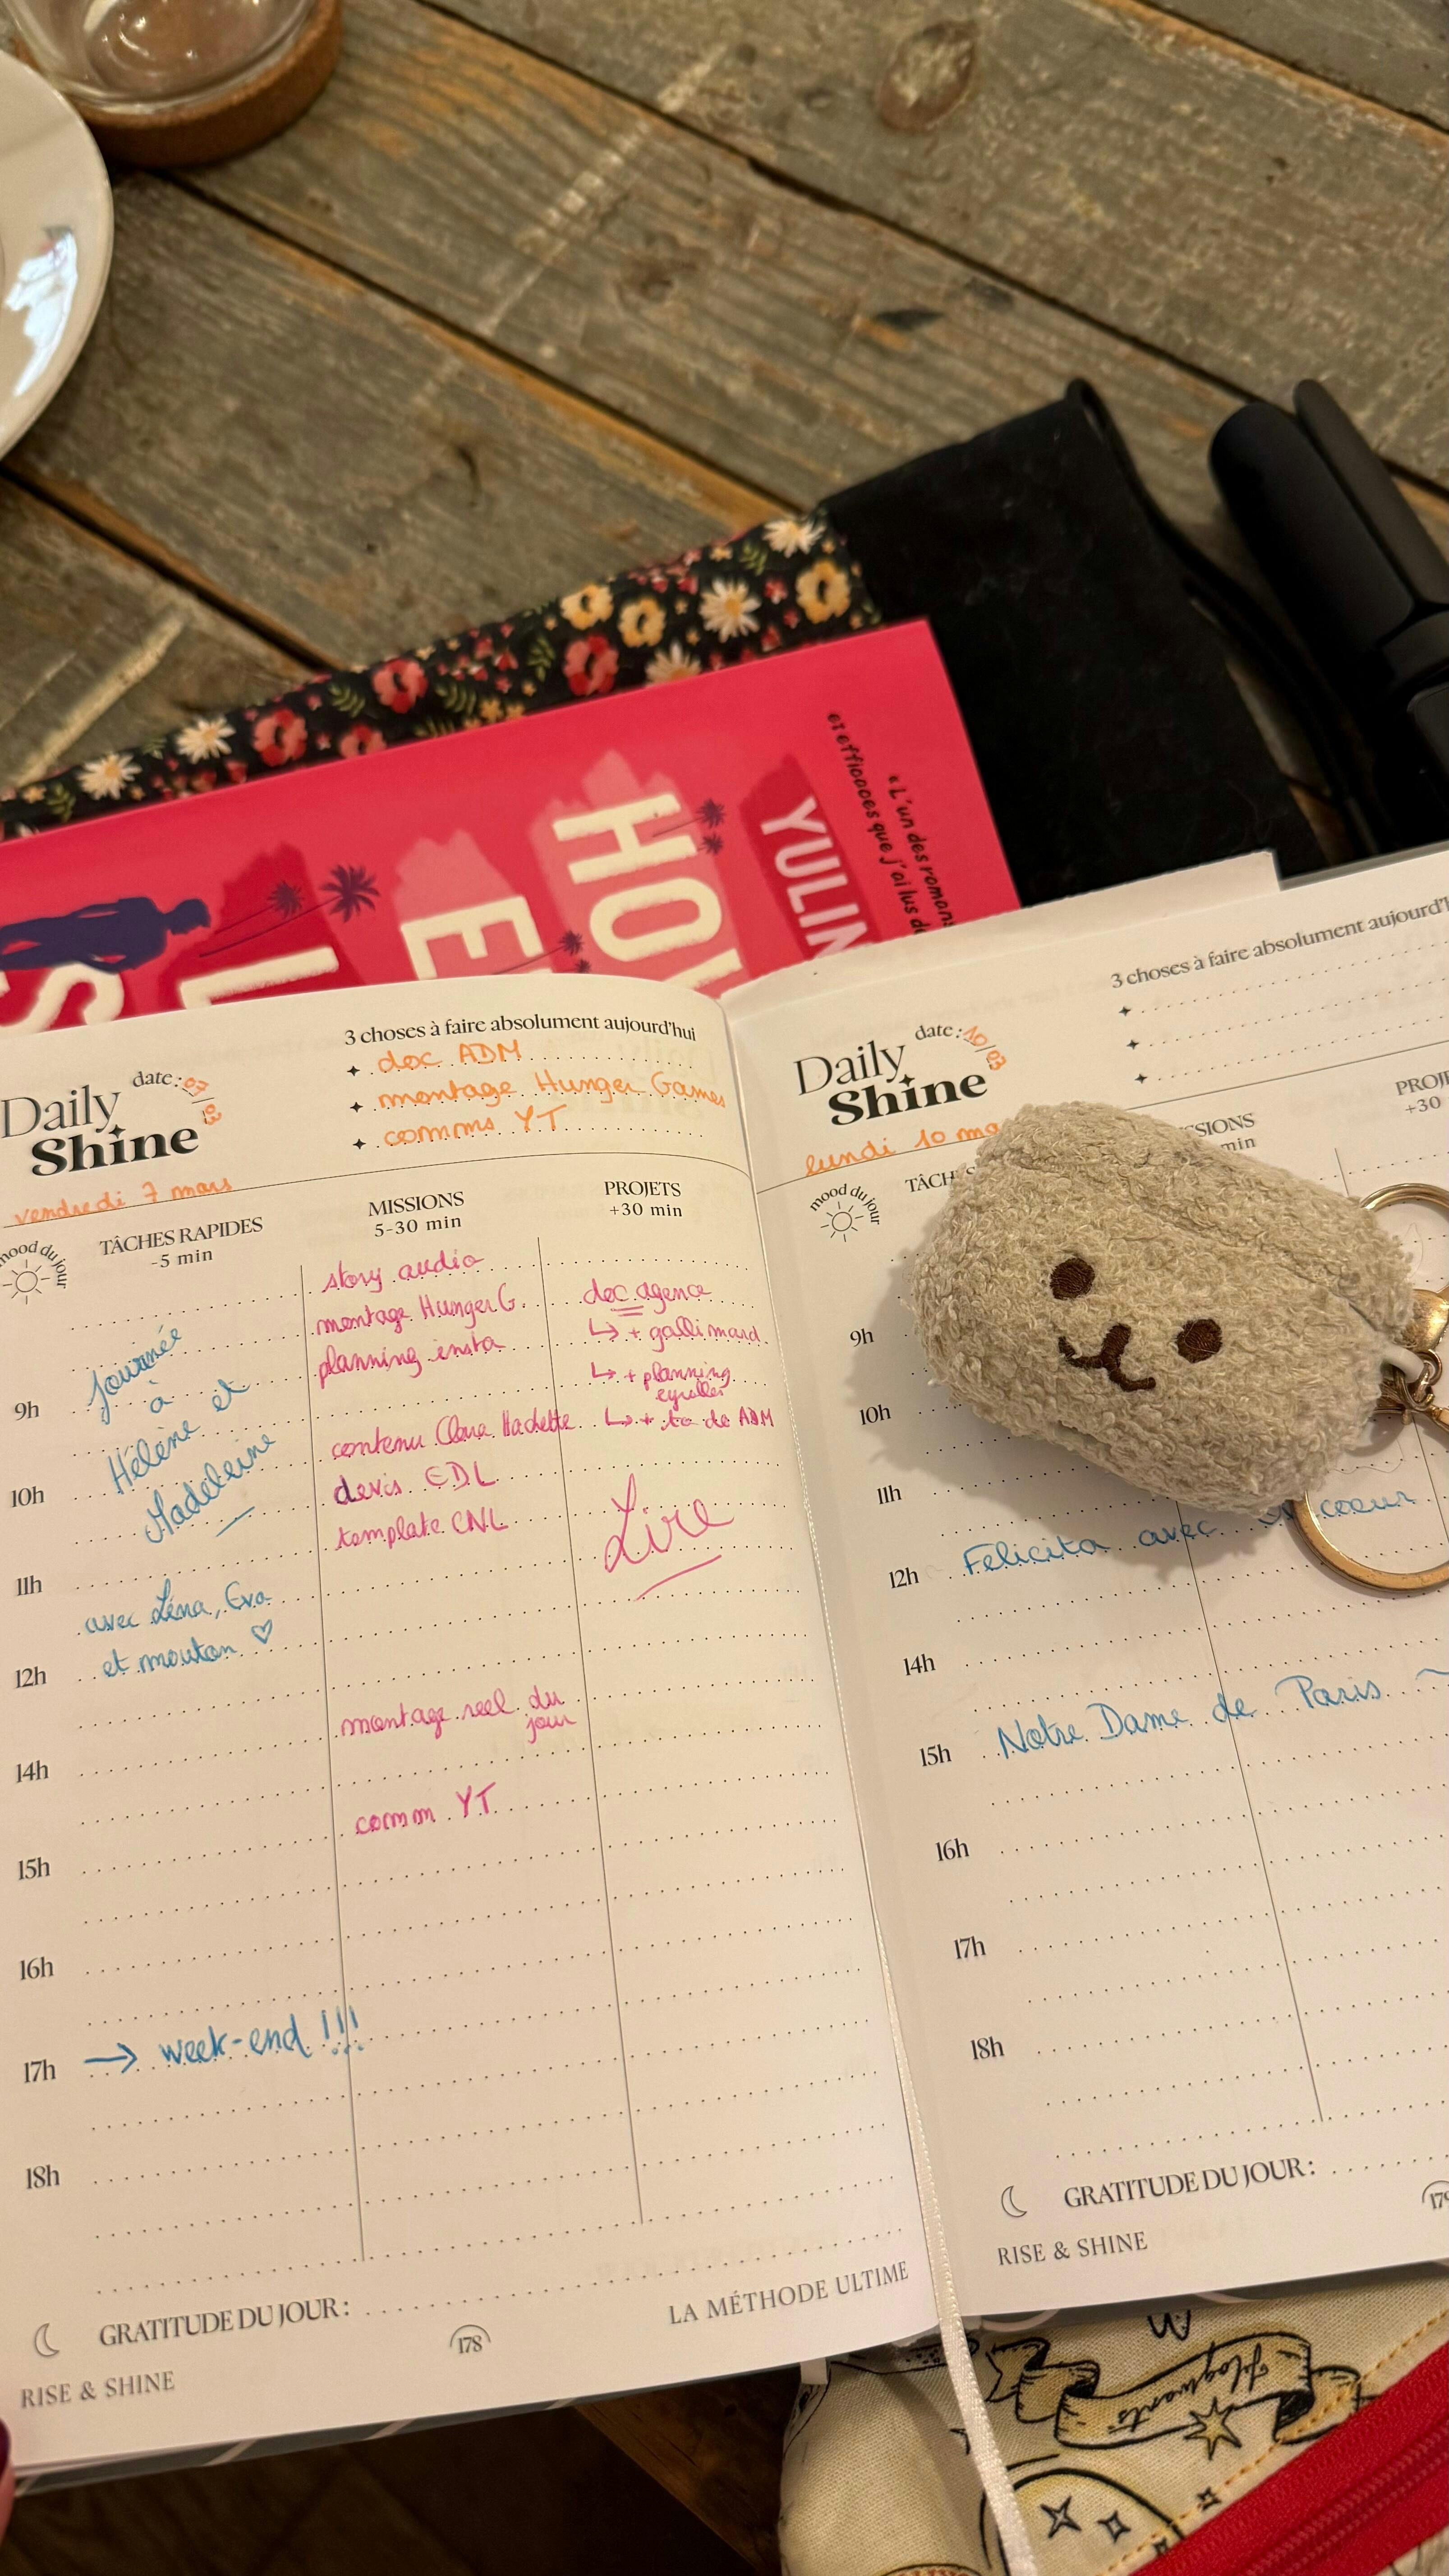 « L'un des romans
et efficaces que j'ai lus de
YULIN
HO
E
L
S
3 choses à faire absolument aujourd'hui
doc ADM
montage Hunger Games
comms YT
date: 07/03
Daily
Shine
vendredi 7 mars
mood du jour
TÂCHES RAPIDES
-5 min
MISSIONS
5-30 min
PROJETS
+30 min
story audio
montage Hunger G.
planning insta
contenu Clara Hachette
devis EDL
template CNL
montage reel du
jour
comm YT
doc agence
↳ + gallimard
↳ + planning
↳ + to do ADM
Lire
9h
10h
11h
12h
14h
15h
16h
17h
18h
Journée
à
Hélène et
Madeleine
avec Léna, Eva
et mouton ♡
→ week-end !!!
GRATITUDE DU JOUR :
178
LA MÉTHODE ULTIME
RISE & SHINE
3 choses à faire absolument aujourd'h
date: 10/03
Daily
Shine
lundi 10 ma
mood du jour
TÂCH
SSIONS
min
PROJE
+30
9h
10h
11h
12h
Felicita avec coeur
14h
15h
Notre Dame de Paris ~
16h
17h
18h
GRATITUDE DU JOUR :
179
RISE & SHINE
Hogwarts